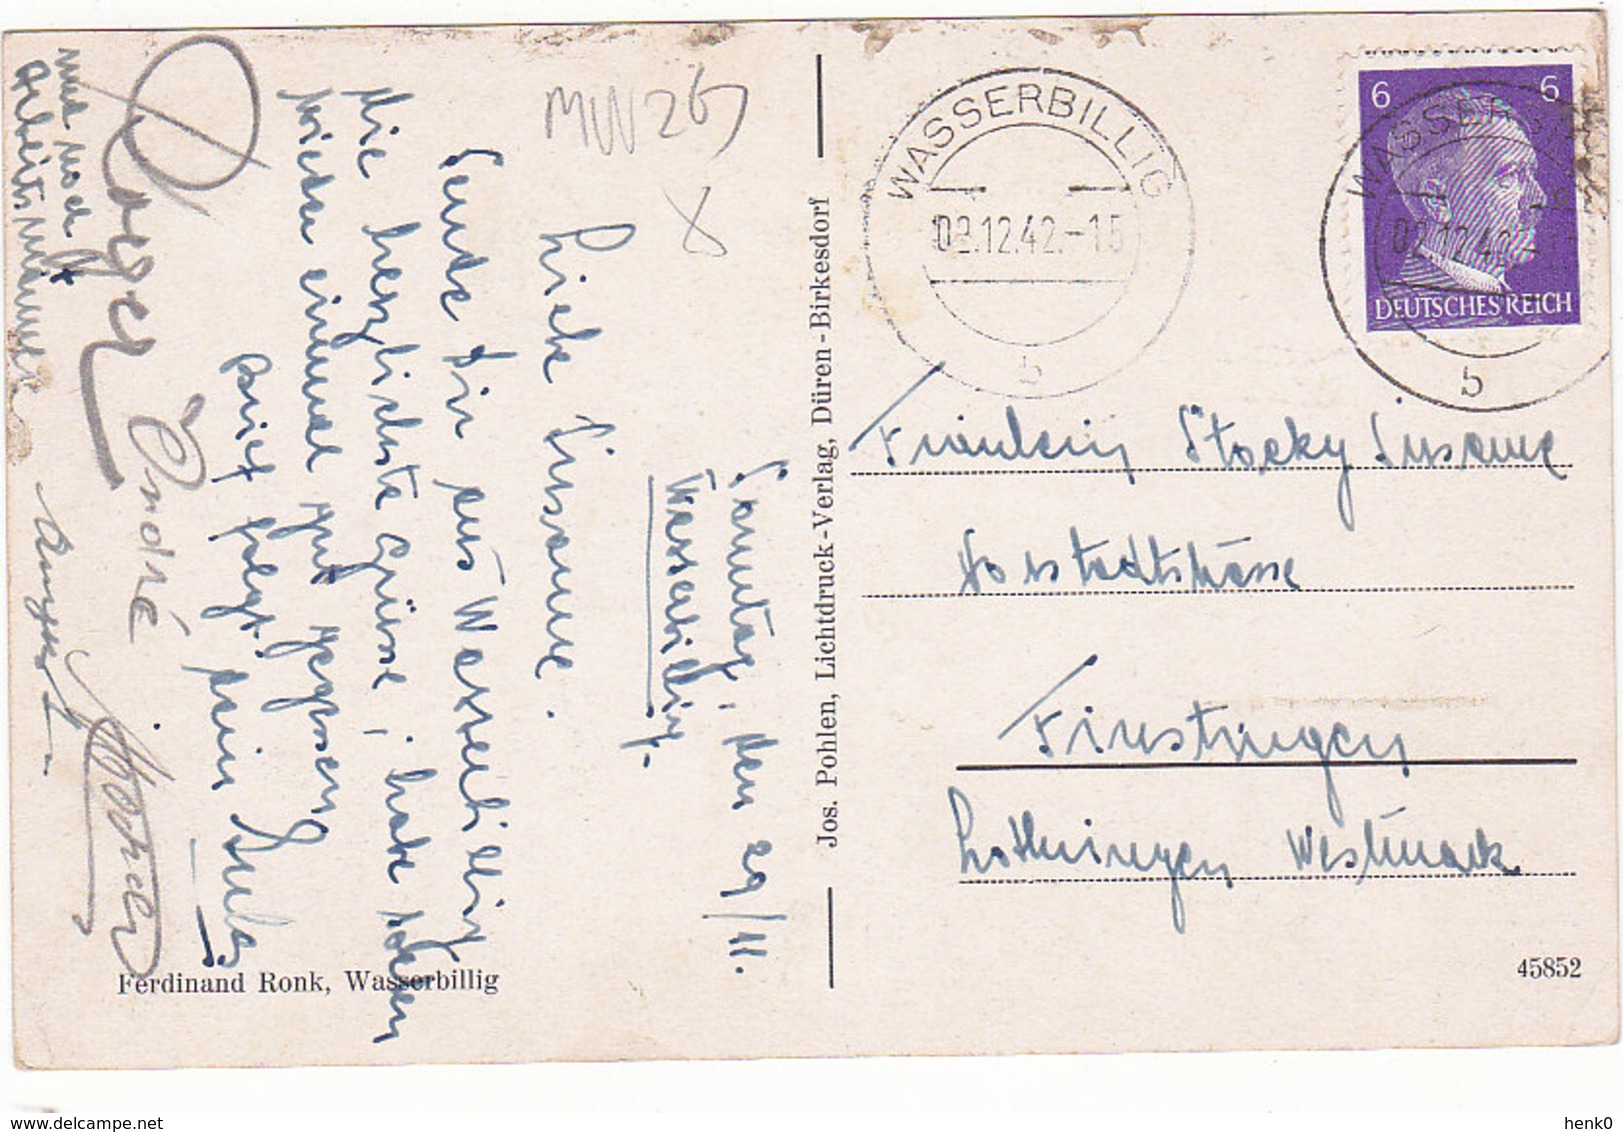 MW 267
Sonntag, den 29/11.
Wasserbillig.
Liebe Susanne.
Sende Dir aus Wasserbillig
die herzlichste Grüsse, habe soeben
wieder einmal gut gegessen
Brief folgt. Dein Jules
Roger André
und noch
Arbeitsmänner
Jos. Pohlen, Lichtdruck-Verlag, Düren-Birkesdorf
Ferdinand Ronk, Wasserbillig
WASSERBILLIG
02.12.42.-15
b
6 6
DEUTSCHES REICH
WASSERBILLIG
02.12.42
b
Fräulein Stocky Susanne
Vorstadtstrasse
Finstingen
Lothringen Westmark
45852
henk0